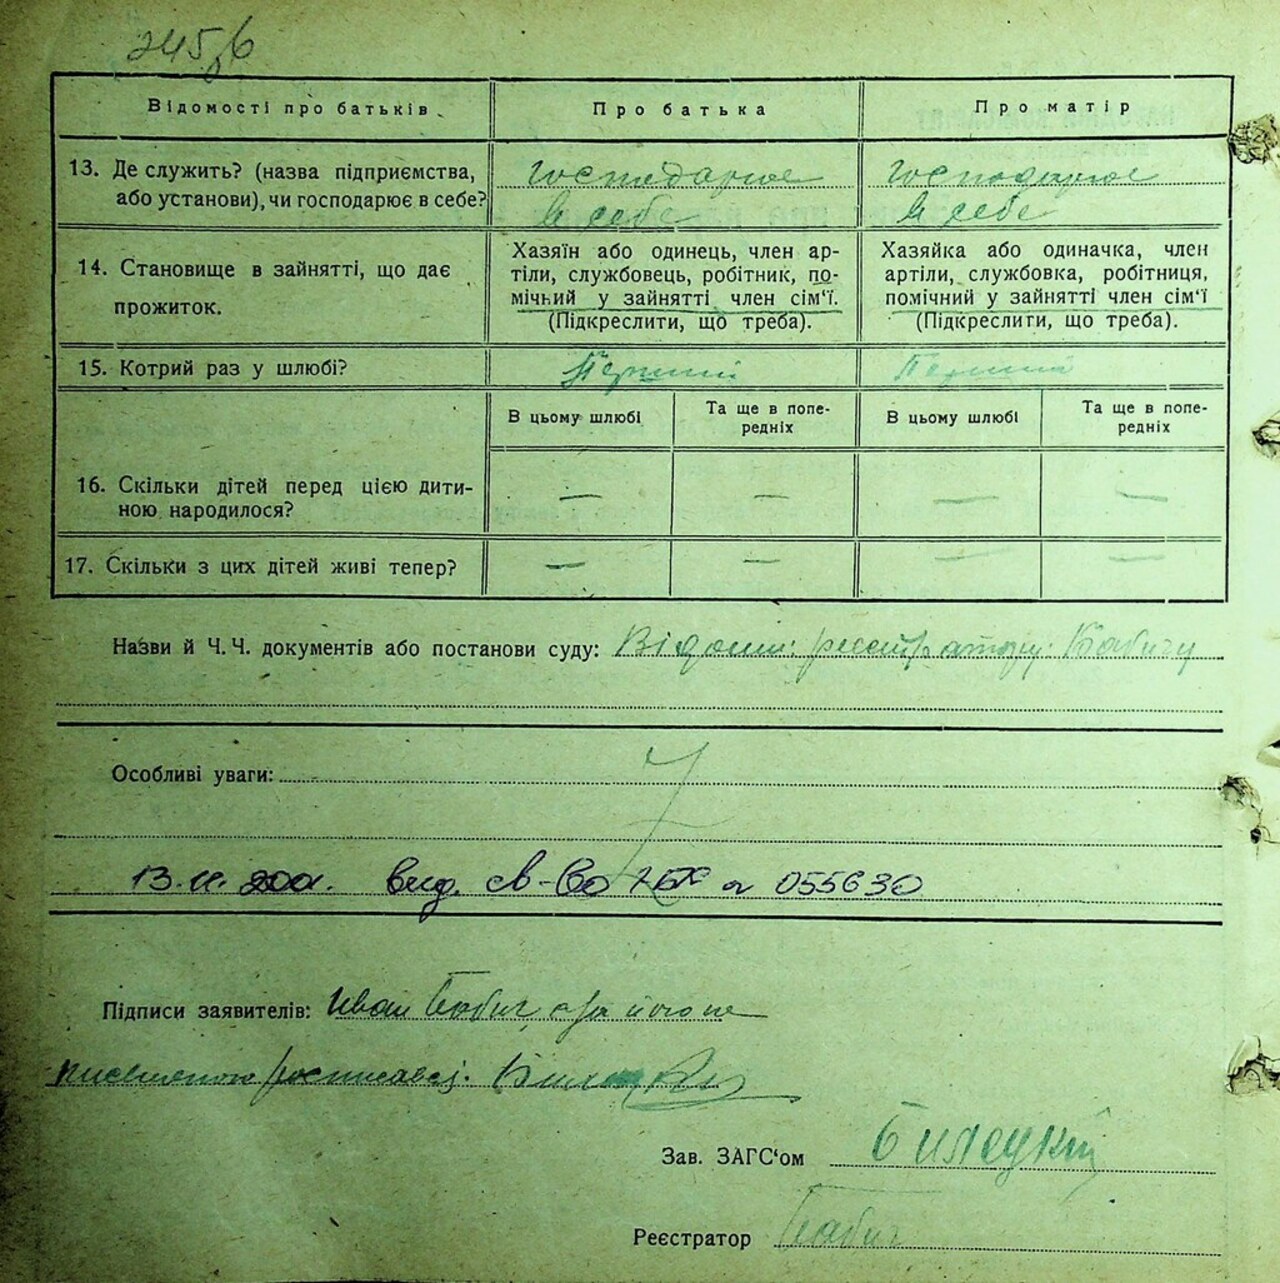 Відомості про батьків. Про батька Про матір
13. Де служить? (назва підприємства, Господарює Господарює
або установи), чи господарює в себе? в себе в себе
Хазяїн або одинець, член ар- Хазяйка або одиначка, член
14. Становище в зайнятті, що дає тіли, службовець, робітник, по- артіли, службовка, робітниця,
прожиток. мічний у зайнятті член сім‘ї. помічний у зайнятті член сім‘ї
(Підкреслити, що треба). (Підкреслити, що треба).
15. Котрий раз у шлюбі? Перший Перший
В цьому шлюбі Та ще в попе- В цьому шлюбі Та ще в попе-
редніх редніх
16. Скільки дітей перед цією дити- — — — —
ною народилося?
17. Скільки з цих дітей живі тепер? — — — —
Назви й Ч. Ч. документів або постанови суду: Відомі реєстратору Бабичу
Особливі уваги:
вид. св-во 055630
Підписи заявителів: Иван Бабич, а за його не
письменого росписавсь
Зав. ЗАГС‘ом Билецкий
Реєстратор Бабич